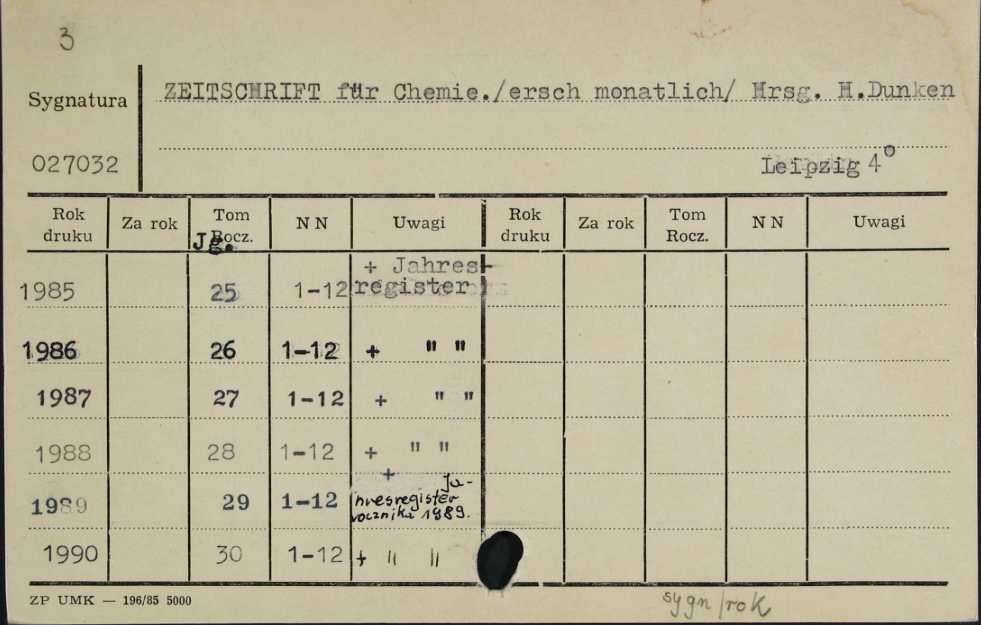 3
Sygnatura
ZEITSCHRIFT für Chemie./ersch monatlich/ Hrsg. H.Dunken
027032
Leipzig 4°
Rok druku Za rok Tom Rocz. N N Uwagi Rok druku Za rok Tom Rocz. N N Uwagi
Jg.
+ Jahres-
1985 25 1-12 register
1986 26 1-12 + " "
1987 27 1-12 + " "
1988 28 1-12 + " "
+ Ja-
1989 29 1-12 hresregister
rocznika 1989.
1990 30 1-12 + " "
ZP UMK — 196/85 5000
sygn/rok